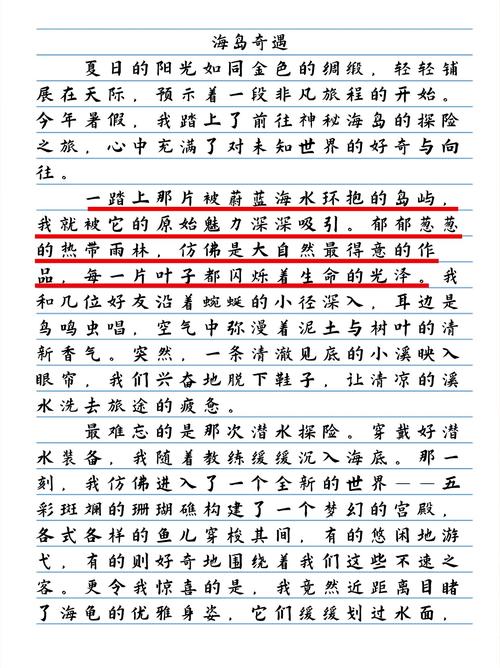 海岛奇遇
夏日的阳光如同金色的绸缎，轻轻铺
展在天际，预示着一段非凡旅程的开始。
今年暑假，我踏上了前往神秘海岛的探险
之旅，心中充满了对未知世界的好奇与向
往。
一踏上那片被蔚蓝海水环抱的岛屿，
我就被它的原始魅力深深吸引。郁郁葱葱
的热带雨林，仿佛是大自然最得意的作
品，每一片叶子都闪烁着生命的光泽。我
和几位好友沿着蜿蜒的小径深入，耳边是
鸟鸣虫唱，空气中弥漫着泥土与树叶的清
新香气。突然，一条清澈见底的小溪映入
眼帘，我们兴奋地脱下鞋子，让清凉的溪
水洗去旅途的疲惫。
最难忘的是那次潜水探险。穿戴好潜
水装备，我随着教练缓缓沉入海底。那一
刻，我仿佛进入了一个全新的世界——五
彩斑斓的珊瑚礁构建了一个梦幻的宫殿，
各式各样的鱼儿穿梭其间，有的悠闲地游
弋，有的则好奇地围绕着我们这些不速之
客。更令我惊喜的是，我竟然近距离目睹
了海龟的优雅身姿，它们缓缓划过水面，